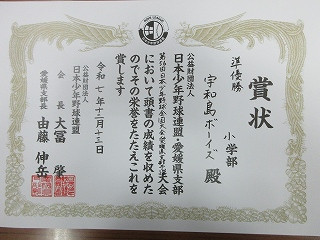 賞状
準優勝
小学部
宇和島ボーイズ 殿
公益財団法人
日本少年野球連盟・愛媛県支部
大会
において頭書の成績を収めた
のでその栄誉をたたえこれを
賞します
令和七年十二月十三日
公益財団法人
日本少年野球連盟
会長 大冨 肇
愛媛県支部長 由藤 伸岳